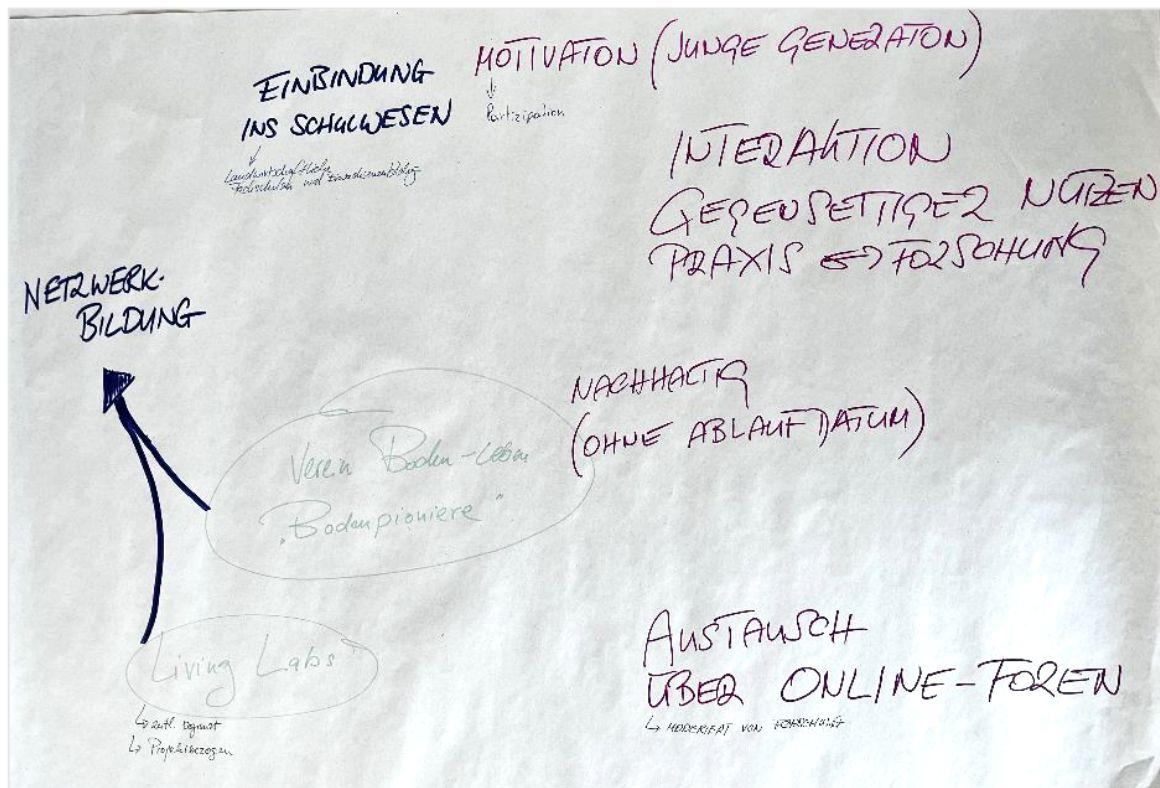 EINBINDUNG
INS SCHULWESEN
↓
Landwirtschaftliche
Fachschulen und
MOTIVATON (JUNGE GENERATON)
↓
Partizipation
INTERAKTION
GEGENSEITIGER NUTZEN
PRAXIS ⇔ FORSCHUNG
NETZWERK-
BILDUNG
NACHHALTIG
(OHNE ABLAUFDATUM)
Verein Boden-Leben
„Bodenpioniere“
Living Labs"
↳ zeitl. begrenzt
↳ Projektbezogen
AUSTAUSCH
ÜBER ONLINE-FOREN
↳ MODERIERT VON FORSCHUNG